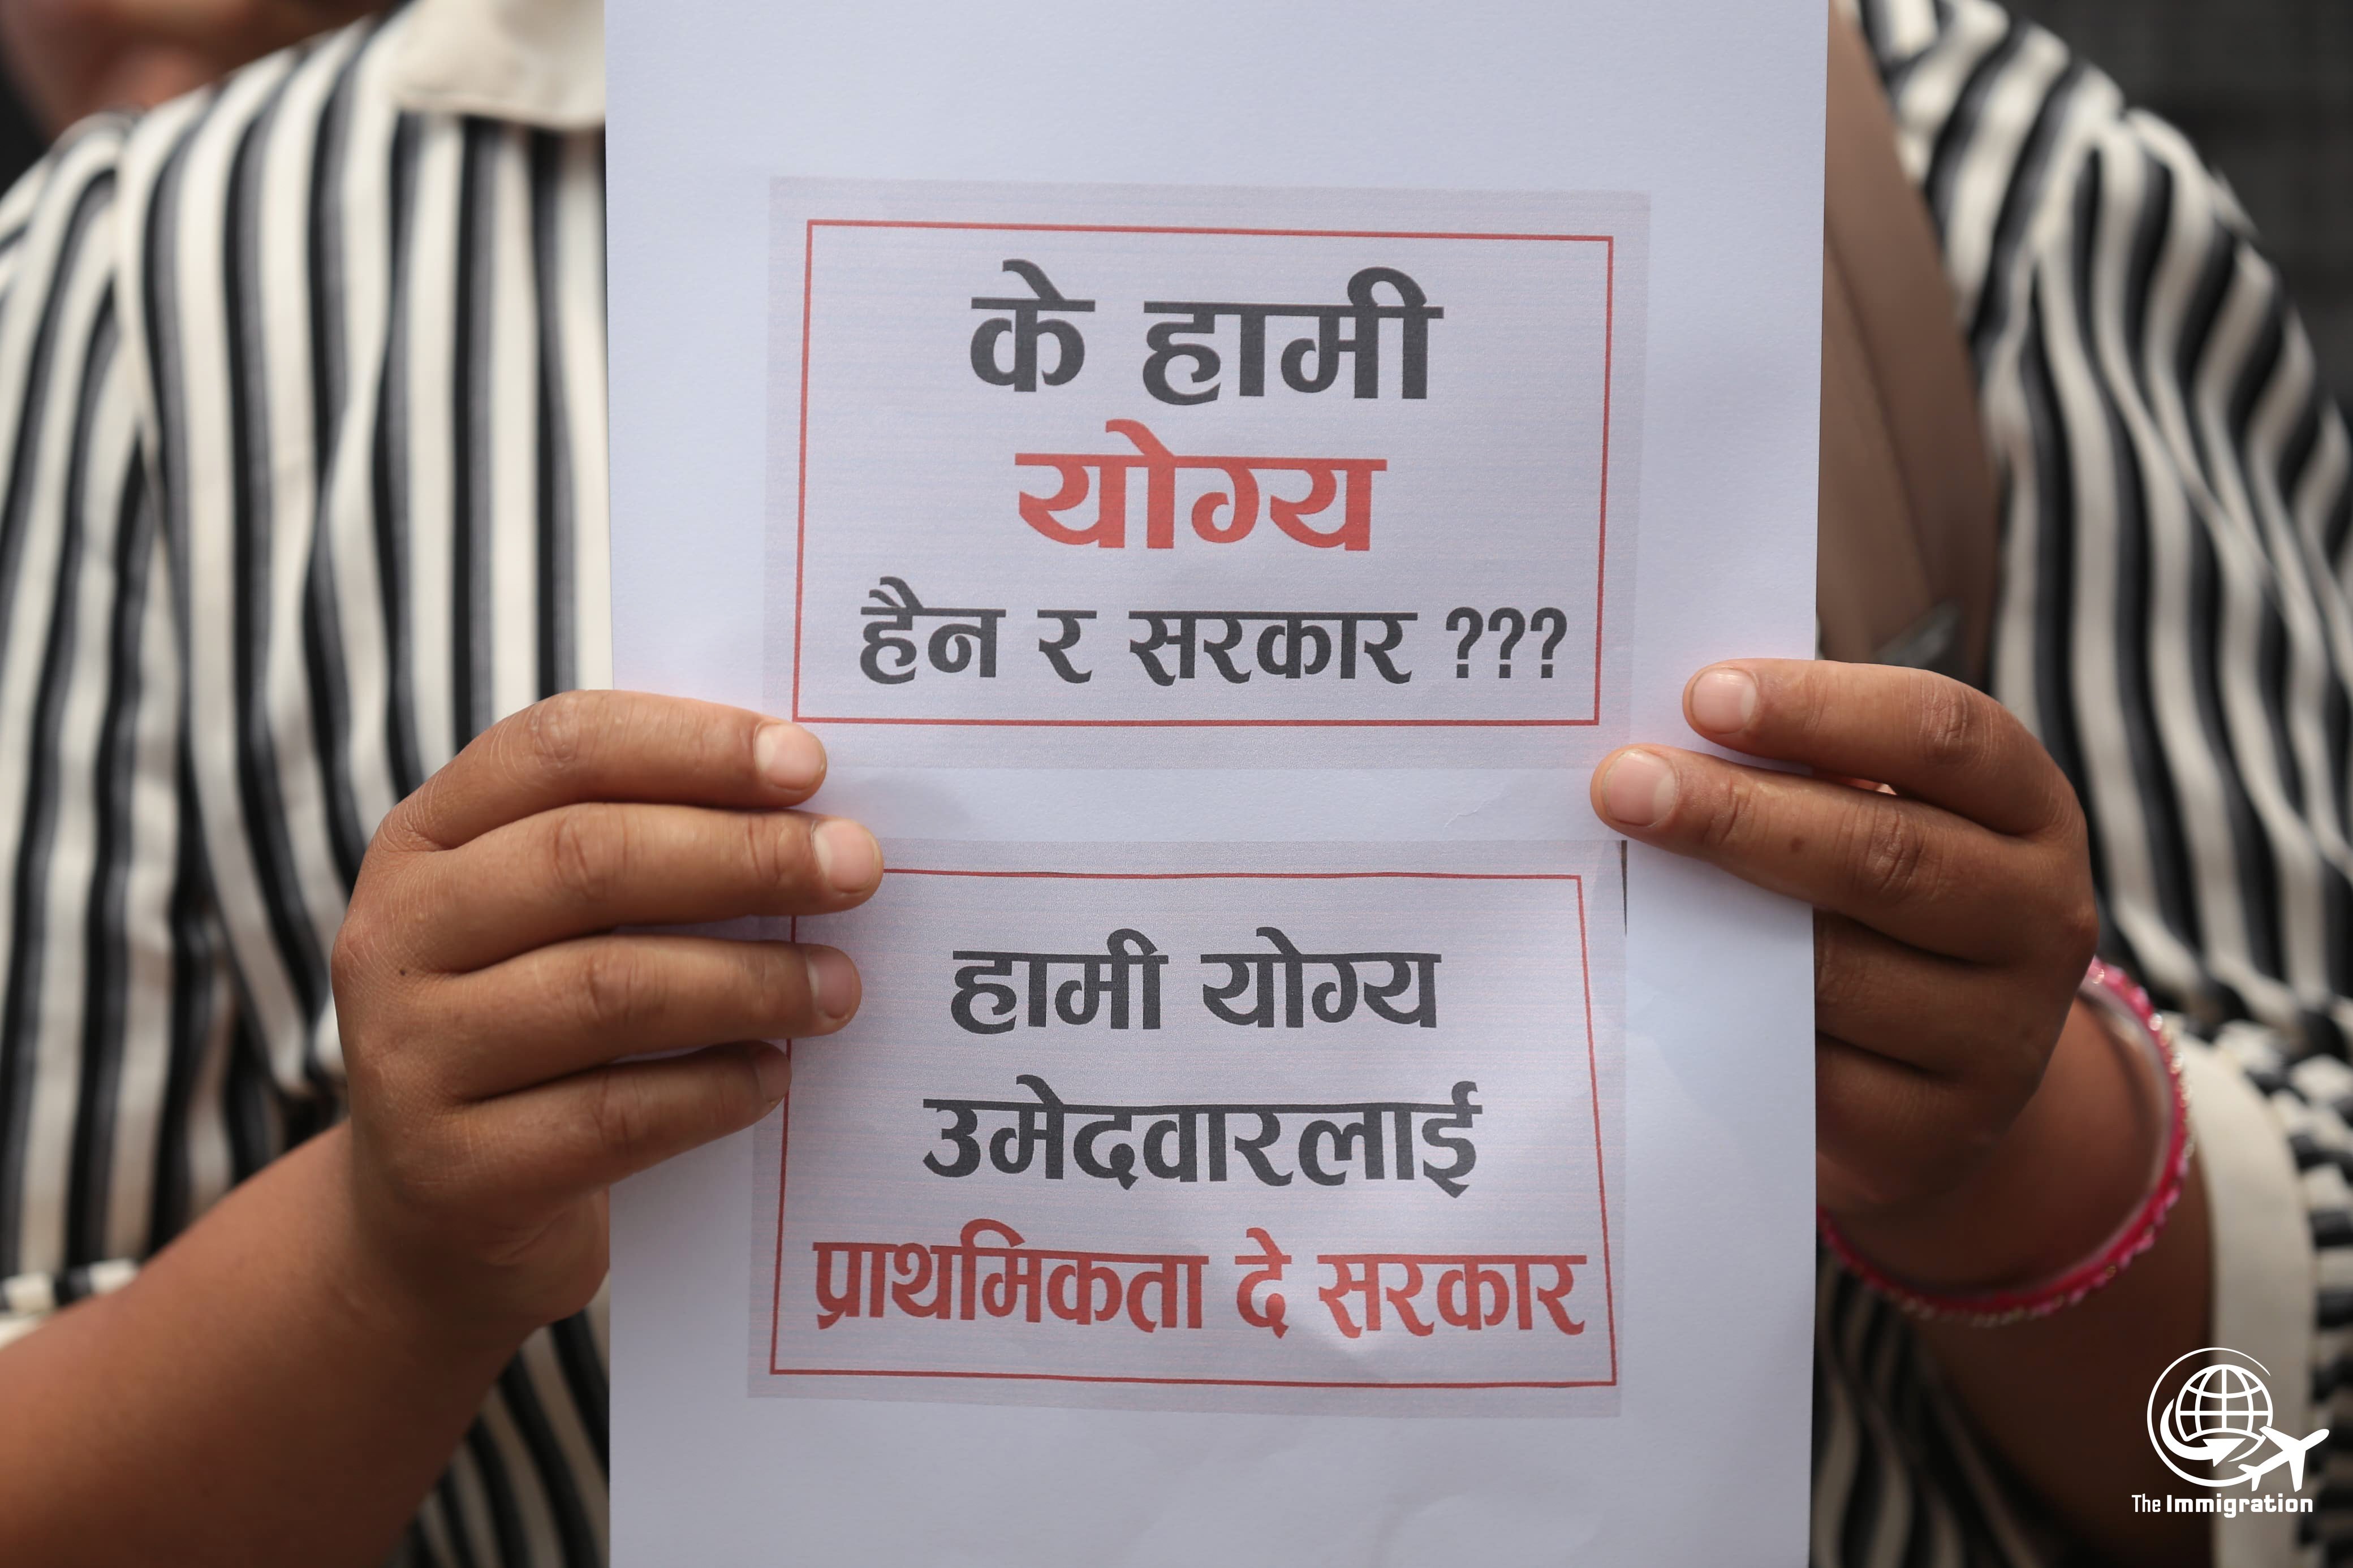 के हामी
योग्य
हैन र सरकार ???
हामी योग्य
उमेदवारलाई
प्राथमिकता दे सरकार
The Immigration